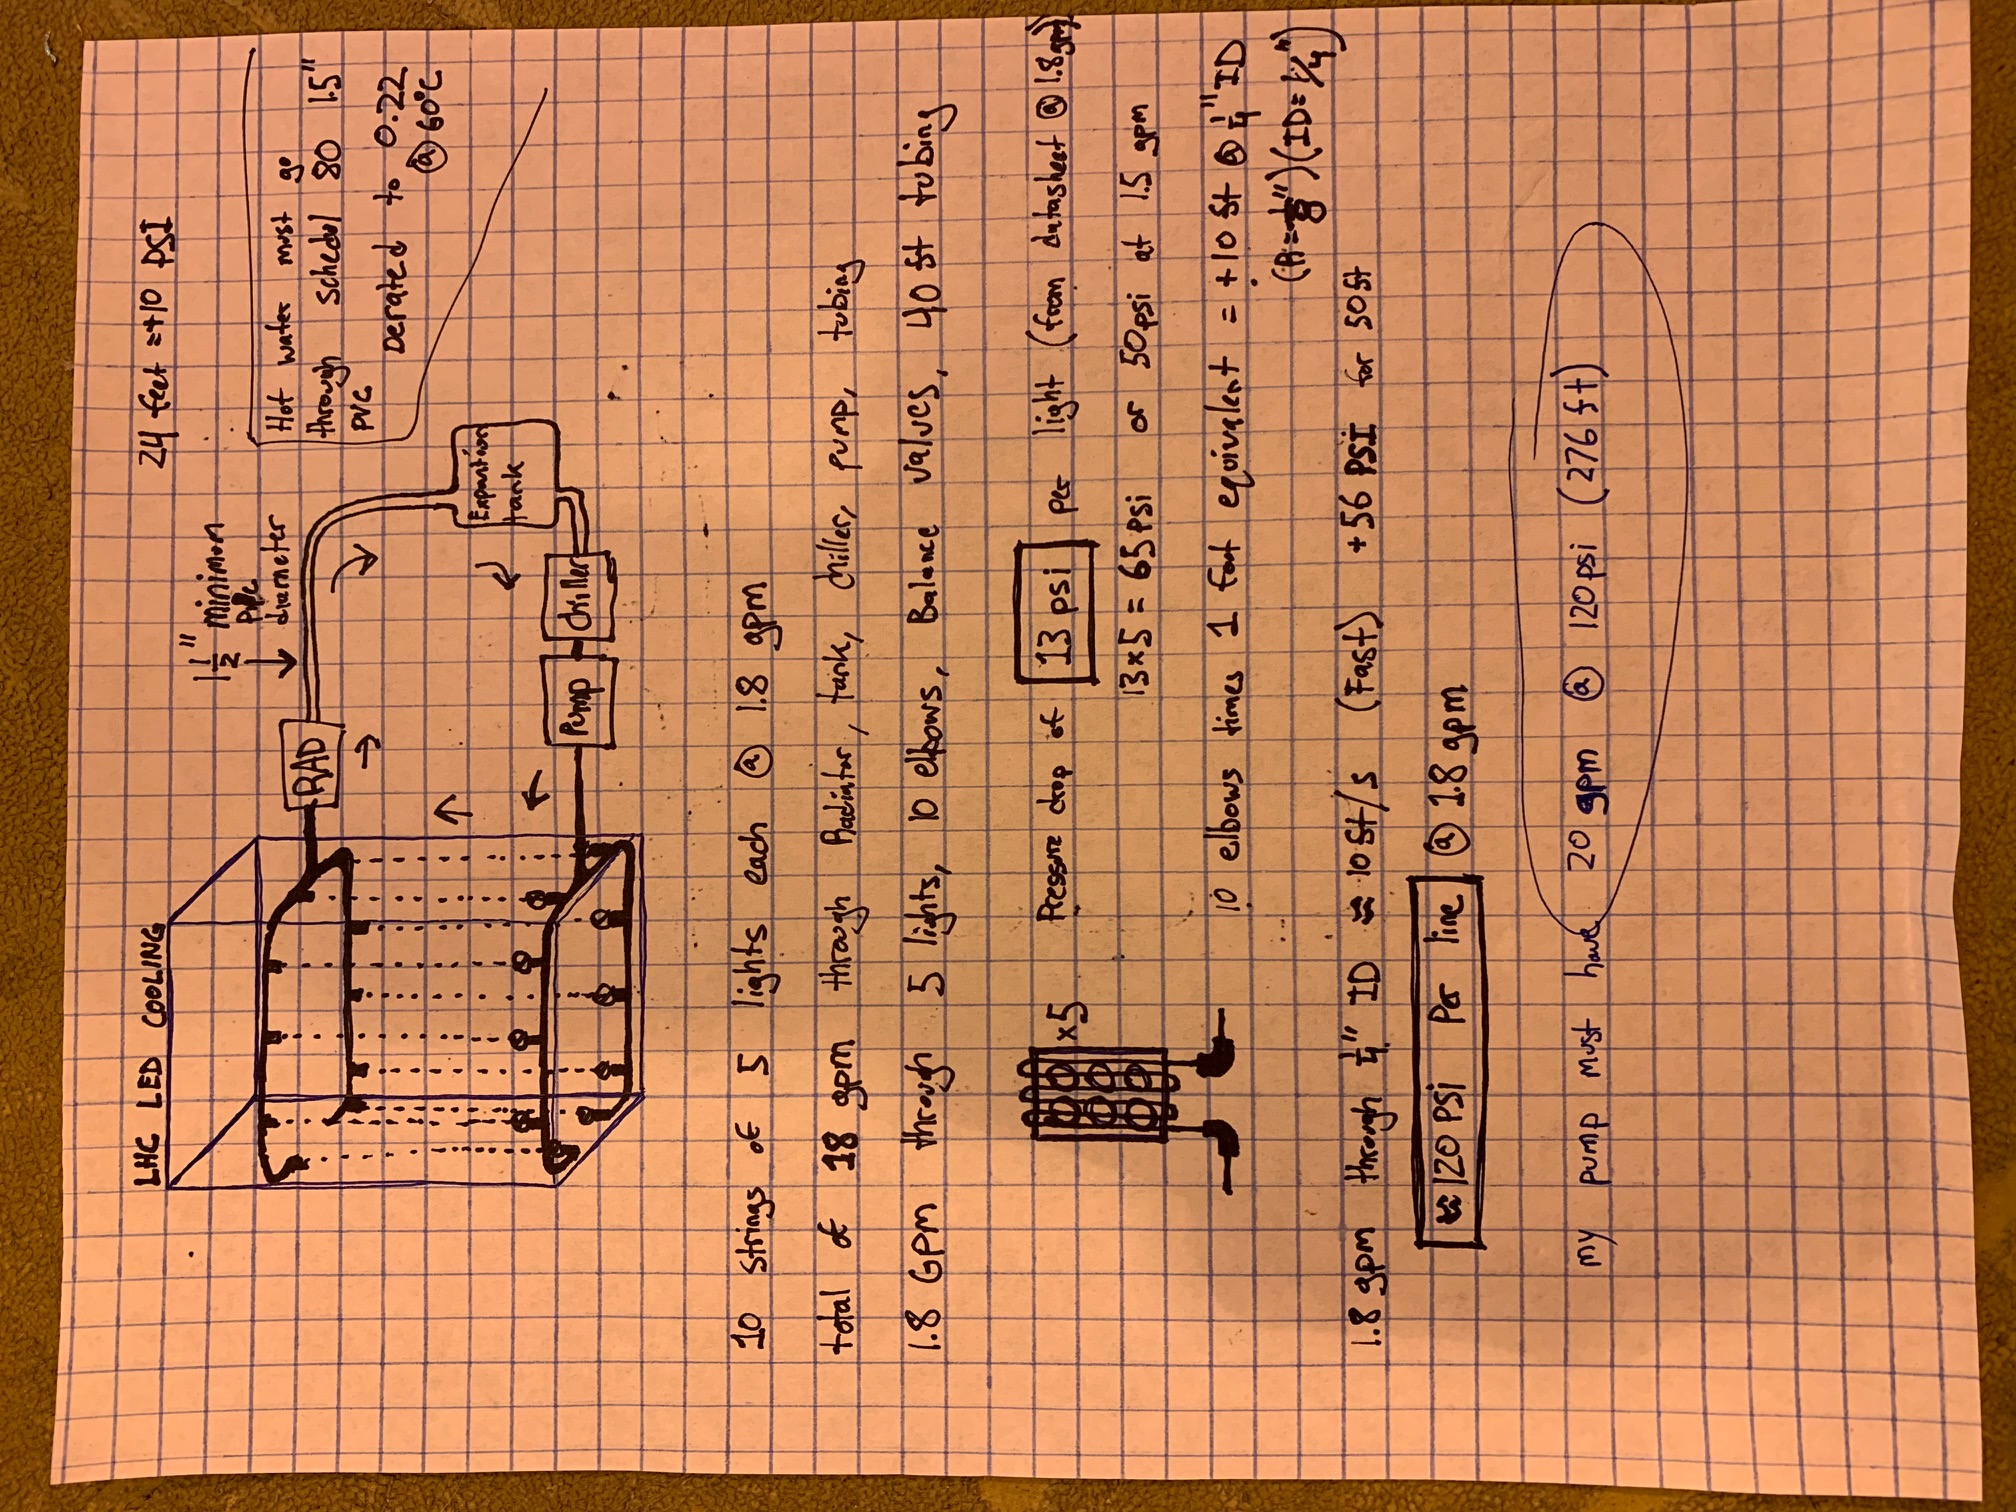 LHC LED COOLING
24 feet =+10 PSI
1 1/2" minimum
PVC
diameter
RAD
Hot water must go
through schedul 80 1.5"
PVC
Derated to 0.22
@ 60°C
Expantion
tank
Pump
Chiller
10 strings of 5 lights each @ 1.8 gpm
total of 18 gpm through Radiator, tank, chiller, pump, tubing
1.8 GPM through 5 lights, 10 elbows, Balance valves, 40 ft tubing
x5
Pressure drop of 13 psi per light (from datasheet @ 1.8 gpm)
13x5 = 65 psi or 50psi at 1.5 gpm
10 elbows times 1 foot equivalent = +10 ft @ 1/4" ID
(R=1/8") (ID=1/4")
1.8 gpm through 1/4" ID ≈ 10 ft/s (Fast) +56 PSI for 50ft
≈ 120 PSi Per line @ 1.8 gpm
my pump must have 20 gpm @ 120psi (276 ft)